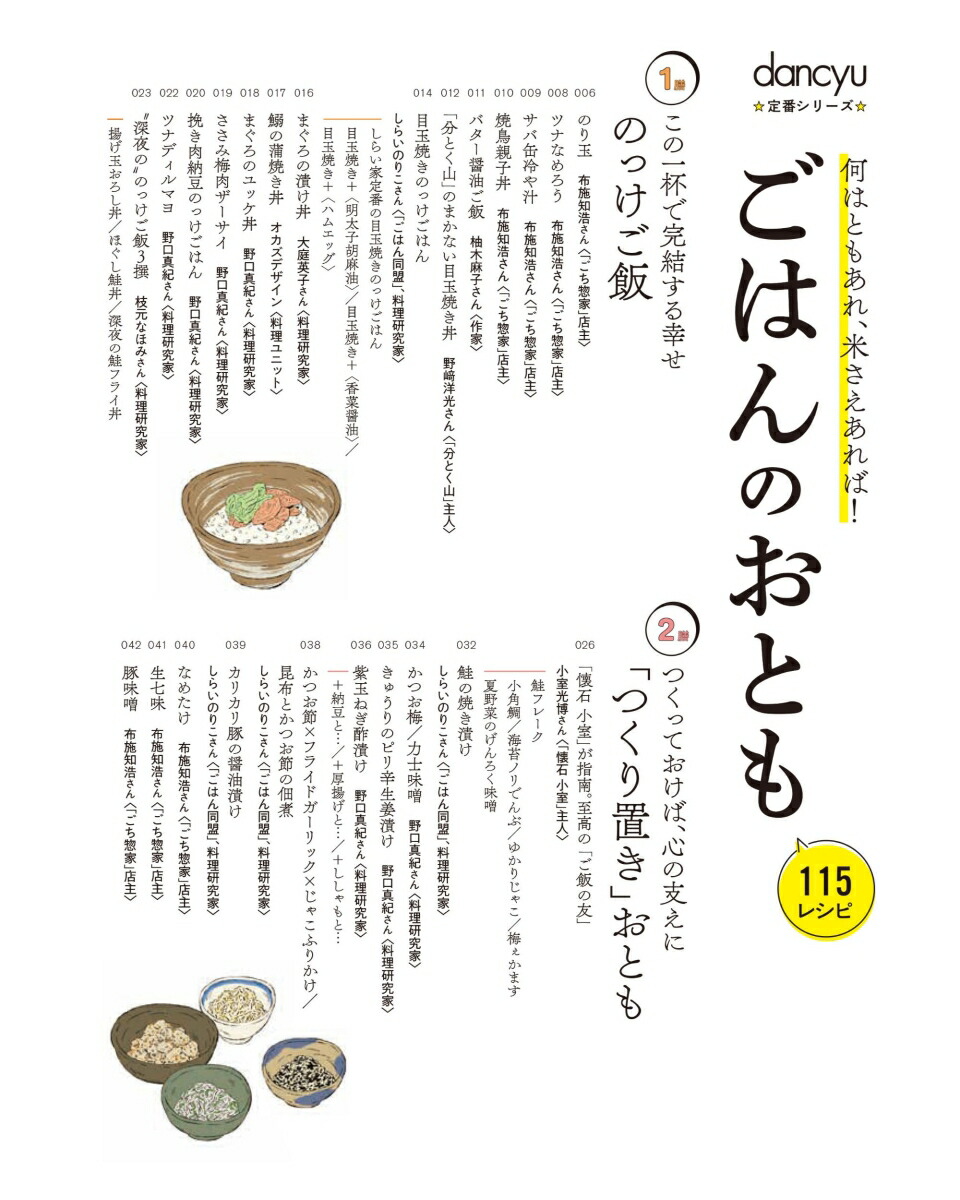 dancyu
☆定番シリーズ☆
何はともあれ、米さえあれば！
ごはんのおとも
115
レシピ
1膳
この一杯で完結する幸せ
のっけご飯
006
のり玉　布施知浩さん〈「ごち惣家」店主〉
008
ツナなめろう　布施知浩さん〈「ごち惣家」店主〉
009
サバ缶冷や汁　布施知浩さん〈「ごち惣家」店主〉
010
焼鳥親子丼　布施知浩さん〈「ごち惣家」店主〉
011
バター醤油ご飯　柚木麻子さん〈作家〉
012
「分とく山」のまかない目玉焼き丼　野﨑洋光さん〈「分とく山」主人〉
014
目玉焼きのっけごはん
しらいのりこさん〈「ごはん同盟」、料理研究家〉
しらい家定番の目玉焼きのっけごはん
目玉焼き＋〈明太子胡麻油〉／目玉焼き＋〈香菜醤油〉／
目玉焼き＋〈ハムエッグ〉
016
まぐろの漬け丼　大庭英子さん〈料理研究家〉
017
鰯の蒲焼き丼　オカズデザイン〈料理ユニット〉
018
まぐろのユッケ丼　野口真紀さん〈料理研究家〉
019
ささみ梅肉ザーサイ　野口真紀さん〈料理研究家〉
020
挽き肉納豆のっけごはん　野口真紀さん〈料理研究家〉
022
ツナディルマヨ　野口真紀さん〈料理研究家〉
023
“深夜の”のっけご飯3撰　枝元なほみさん〈料理研究家〉
揚げ玉おろし丼／ほぐし鮭丼／深夜の鮭フライ丼
2膳
つくっておけば、心の支えに
「つくり置き」おとも
026
「懐石 小室」が指南。至高の「ご飯の友」
小室光博さん〈「懐石 小室」主人〉
鮭フレーク
小角鯛／海苔ノリでんぶ／ゆかりじゃこ／梅ぇかます
夏野菜のげんろく味噌
032
鮭の焼き漬け
しらいのりこさん〈「ごはん同盟」、料理研究家〉
034
かつお梅／力士味噌　野口真紀さん〈料理研究家〉
035
きゅうりのピリ辛生姜漬け　野口真紀さん〈料理研究家〉
036
紫玉ねぎ酢漬け　野口真紀さん〈料理研究家〉
＋納豆と…／＋厚揚げと…／＋ししゃもと…
038
かつお節×フライドガーリック×じゃこふりかけ／
昆布とかつお節の佃煮
しらいのりこさん〈「ごはん同盟」、料理研究家〉
039
カリカリ豚の醤油漬け
しらいのりこさん〈「ごはん同盟」、料理研究家〉
040
なめたけ　布施知浩さん〈「ごち惣家」店主〉
041
生七味　布施知浩さん〈「ごち惣家」店主〉
042
豚味噌　布施知浩さん〈「ごち惣家」店主〉